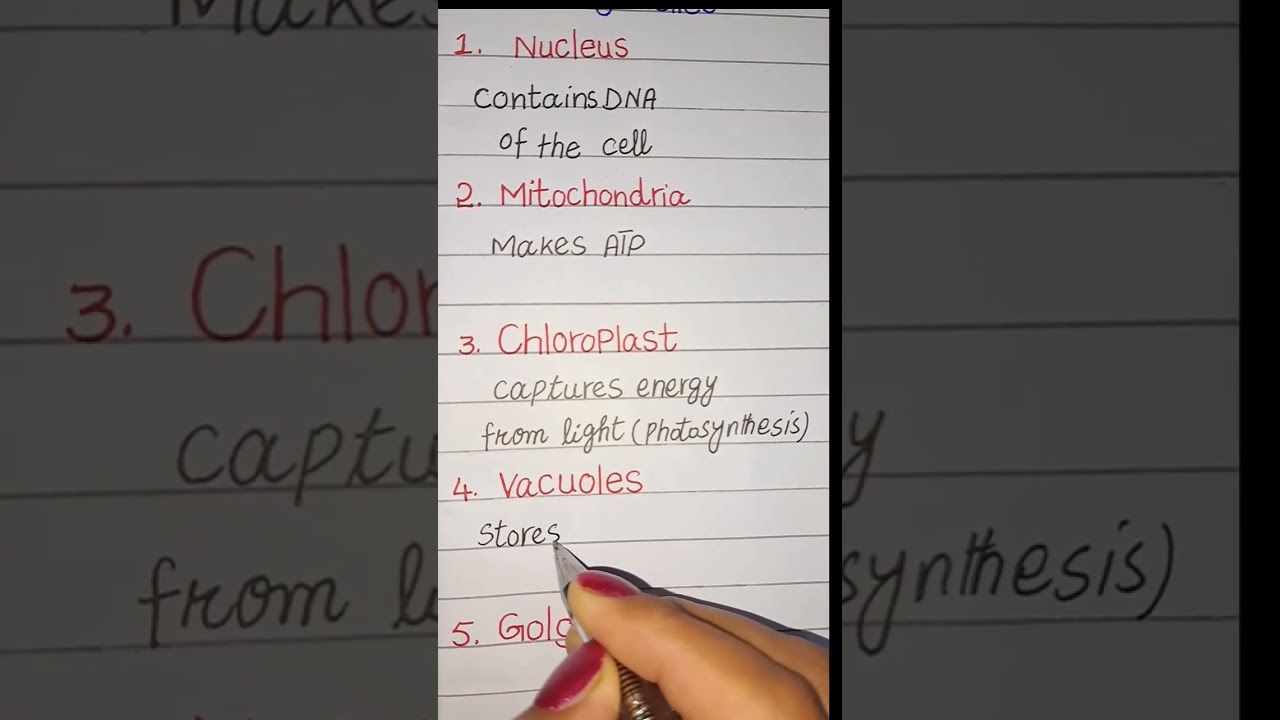 1. Nucleus
Contains DNA
of the cell
2. Mitochondria
Makes ATP
3. Chloroplast
captures energy
from light (Photosynthesis)
4. Vacuoles
Stores
5. Golg